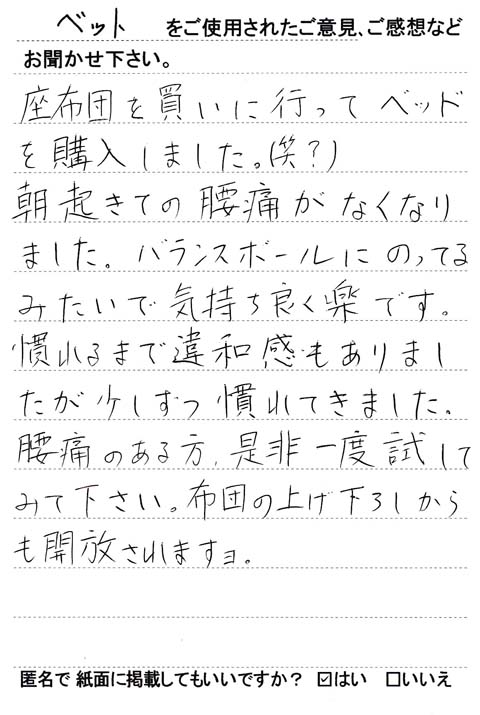 ベット をご使用されたご意見、ご感想など
お聞かせ下さい。
座布団を買いに行ってベッド
を購入しました。(笑?)
朝起きての腰痛がなくなり
ました。バランスボールにのってる
みたいで気持ち良く楽です。
慣れるまで違和感もありまし
たが少しずつ慣れてきました。
腰痛のある方、是非一度試して
みて下さい。布団の上げ下ろしから
も開放されますョ。
匿名で紙面に掲載してもいいですか? ☑はい □いいえ